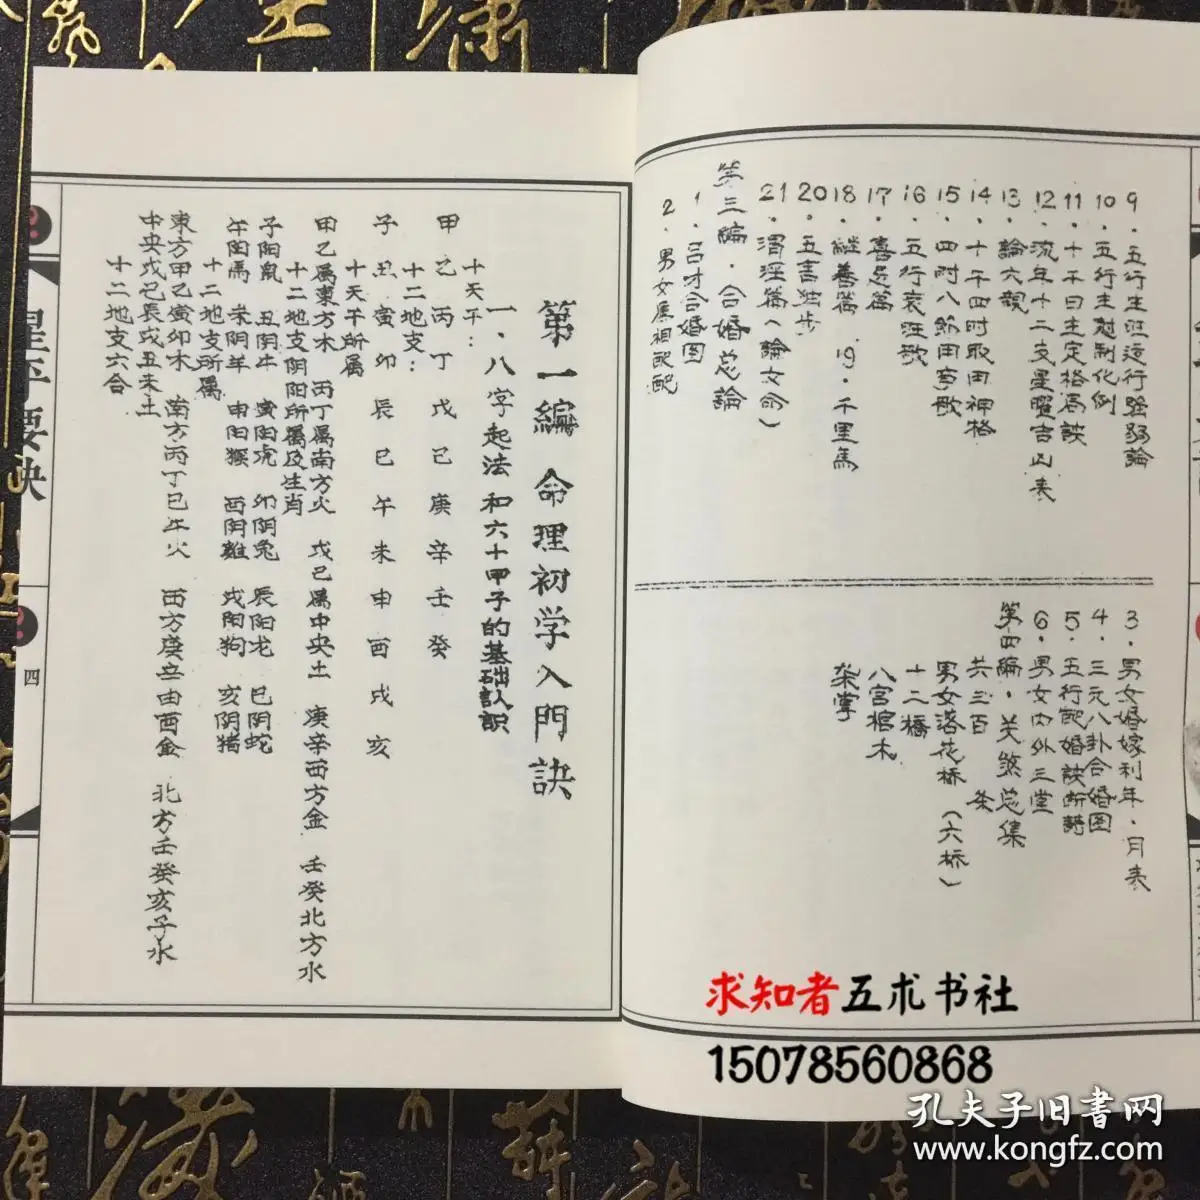 9. 五行生旺运行强弱論
10. 五行生尅制化例
11. 十干日主定格局訣
12. 流年十二支星曜吉凶表
13. 論六親
14. 十干四时取用神格
15. 四时八節用事歌
16. 五行衰旺歌
17. 喜忌篇
18. 継善篇 19. 千里馬
20. 五言独步
21. 渭涇篇（論女命）
第三編. 合婚总論
1. 吕才合婚图
2. 男女属相配配
3. 男女婚嫁利年. 月表
4. 三元八卦合婚图
5. 五行配婚訣断詩
6. 男女内外三堂
第四編. 关煞总集
共三百 条
男女落花桥（六桥）
十二橋
八宫棺木
架掌
第一編 命理初学入門訣
一. 八字起法和六十甲子的基础认识
十天干：
甲 乙 丙 丁 戊 己 庚 辛 壬 癸
十二地支：
子 丑 寅 卯 辰 巳 午 未 申 酉 戌 亥
十天干所属
甲乙属東方木 丙丁属南方火 戊己属中央土 庚辛西方金 壬癸北方水
十二地支阴阳所属及生肖
子阳鼠 丑阴牛 寅阳虎 卯阴兔 辰阳龙 巳阴蛇
午阳馬 未阴羊 申阳猴 酉阴雞 戌阳狗 亥阴猪
十二地支所属
東方甲乙寅卯木 南方丙丁巳午火 西方庚辛由酉金 北方壬癸亥子水
中央戊己辰戌丑未土
十二地支六合
星平要訣
四
求知者五术书社
15078560868
孔夫子旧書网
www.kongfz.com